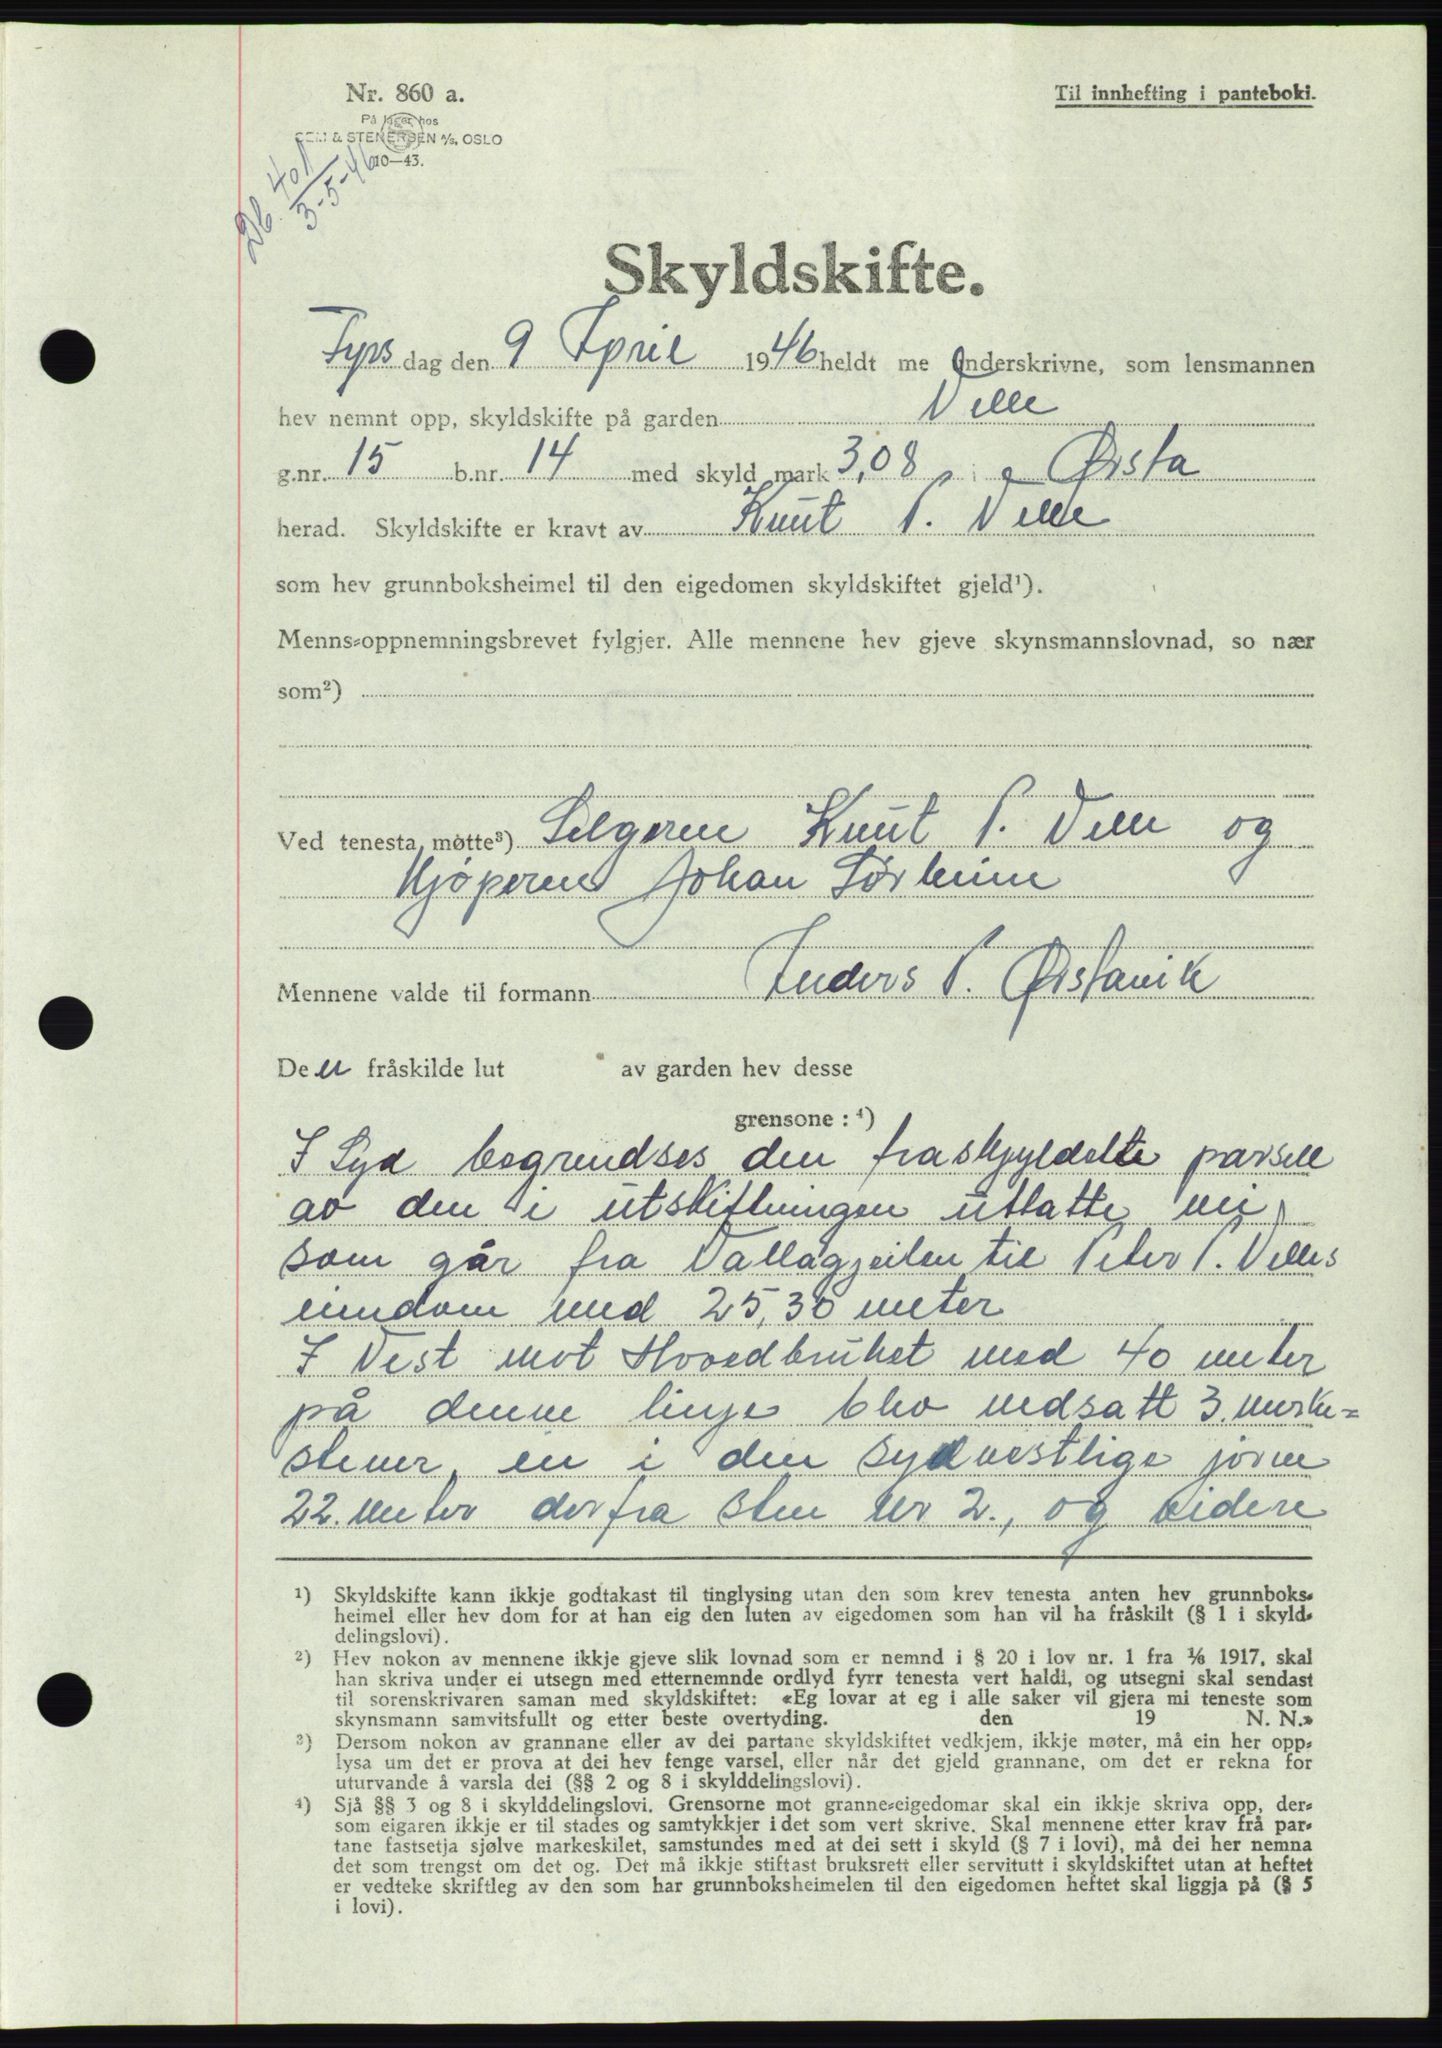 Nr. 860 a.
Til innhefting i panteboki.
På lager hos
SEM & STENERSEN A/S, OSLO
10—43.
Db 401
3-5-46
Skyldskifte.
Tyrsdag den 9 April 1946 heldt me underskrivne, som lensmannen
hev nemnt opp, skyldskifte på garden Velle
g.nr. 15 b.nr. 14 med skyld mark 3,08 i Ørsta
herad. Skyldskifte er kravt av Knut P. Velle
som hev grunnboksheimel til den eigedomen skyldskiftet gjeld¹).
Menns-oppnemningsbrevet fylgjer. Alle mennene hev gjeve skynsmannslovnad, so nær
som²)
Ved tenesta møtte³) Selgeren Knut P. Velle og
Kjøperen Johan Sørheim
Mennene valde til formann Anders P. Ørstavik
Den fråskilde lut av garden hev desse
grensone : ⁴)
I Syd begrendses den fraskjyldelte parsell
av den i utskiftningen utlatte vei
som går fra Vallagjeilen til Peter P. Velles
eiendom med 25,30 meter
I Vest mot Hovedbruket med 40 meter
på denne linje blev nedsatt 3. merke-
stener, en i den sydvestlige jørne
22. meter derfra sten nr 2., og videre
¹) Skyldskifte kann ikkje godtakast til tinglysing utan den som krev tenesta anten hev grunnboks-
heimel eller hev dom for at han eig den luten av eigedomen som han vil ha fråskilt (§ 1 i skyld-
delingslovi).
²) Hev nokon av mennene ikkje gjeve slik lovnad som er nemnd i § 20 i lov nr. 1 fra ⅙ 1917, skal
han skriva under ei utsegn med etternemnde ordlyd fyrr tenesta vert haldi, og utsegni skal sendast
til sorenskrivaren saman med skyldskiftet: «Eg lovar at eg i alle saker vil gjera mi teneste som
skynsmann samvitsfullt og etter beste overtyding. den 19 N. N.»
³) Dersom nokon av grannane eller av dei partane skyldskiftet vedkjem, ikkje møter, må ein her opp-
lysa um det er prova at dei hev fenge varsel, eller når det gjeld grannane, om det er rekna for
uturvande å varsla dei (§§ 2 og 8 i skylddelingslovi).
⁴) Sjå §§ 3 og 8 i skylddelingslovi. Grensorne mot granne-eigedomar skal ein ikkje skriva opp, der-
som eigaren ikkje er til stades og samtykkjer i det som vert skrive. Skal mennene etter krav frå par-
tane fastsetja sjølve markeskilet, samstundes med at dei sett i skyld (§ 7 i lovi), må dei her nemna
det som trengst om det og. Det må ikkje stiftast bruksrett eller servitutt i skyldskiftet utan at heftet
er vedteke skriftleg av den som har grunnboksheimelen til den eigedomen heftet skal liggja på (§ 5
i lovi).